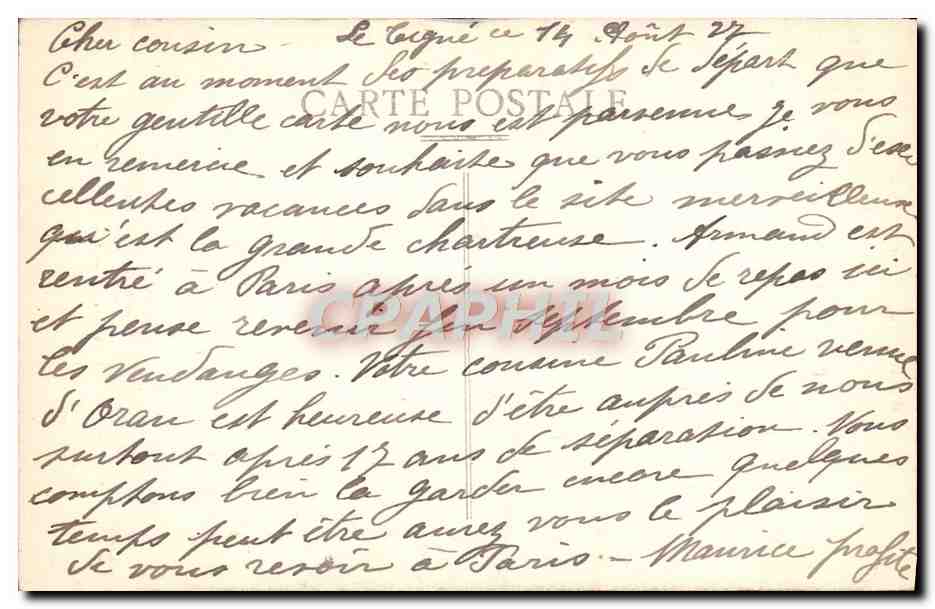 Cher cousin - Le Tigné ce 14 Août 27
C'est au moment des preparatifs de départ que
CARTE POSTALE
votre gentille carte nous est parvenue, je vous
en remercie et souhaite que vous passiez d'exe
cellentes vacances dans le site merveilleux
qu'est la grande chartreuse. Armand est
rentré à Paris après un mois de repos ici
CPAPHIL
et pense revenir fin septembre pour
les vendanges. Votre cousine Pauline venue
d'Oran est heureuse d'être auprès de nous
surtout après 17 ans de séparation. Nous
comptons bien la garder encore quelques
temps peut être aurez vous le plaisir
de vous revoir à Paris - Maurice profite